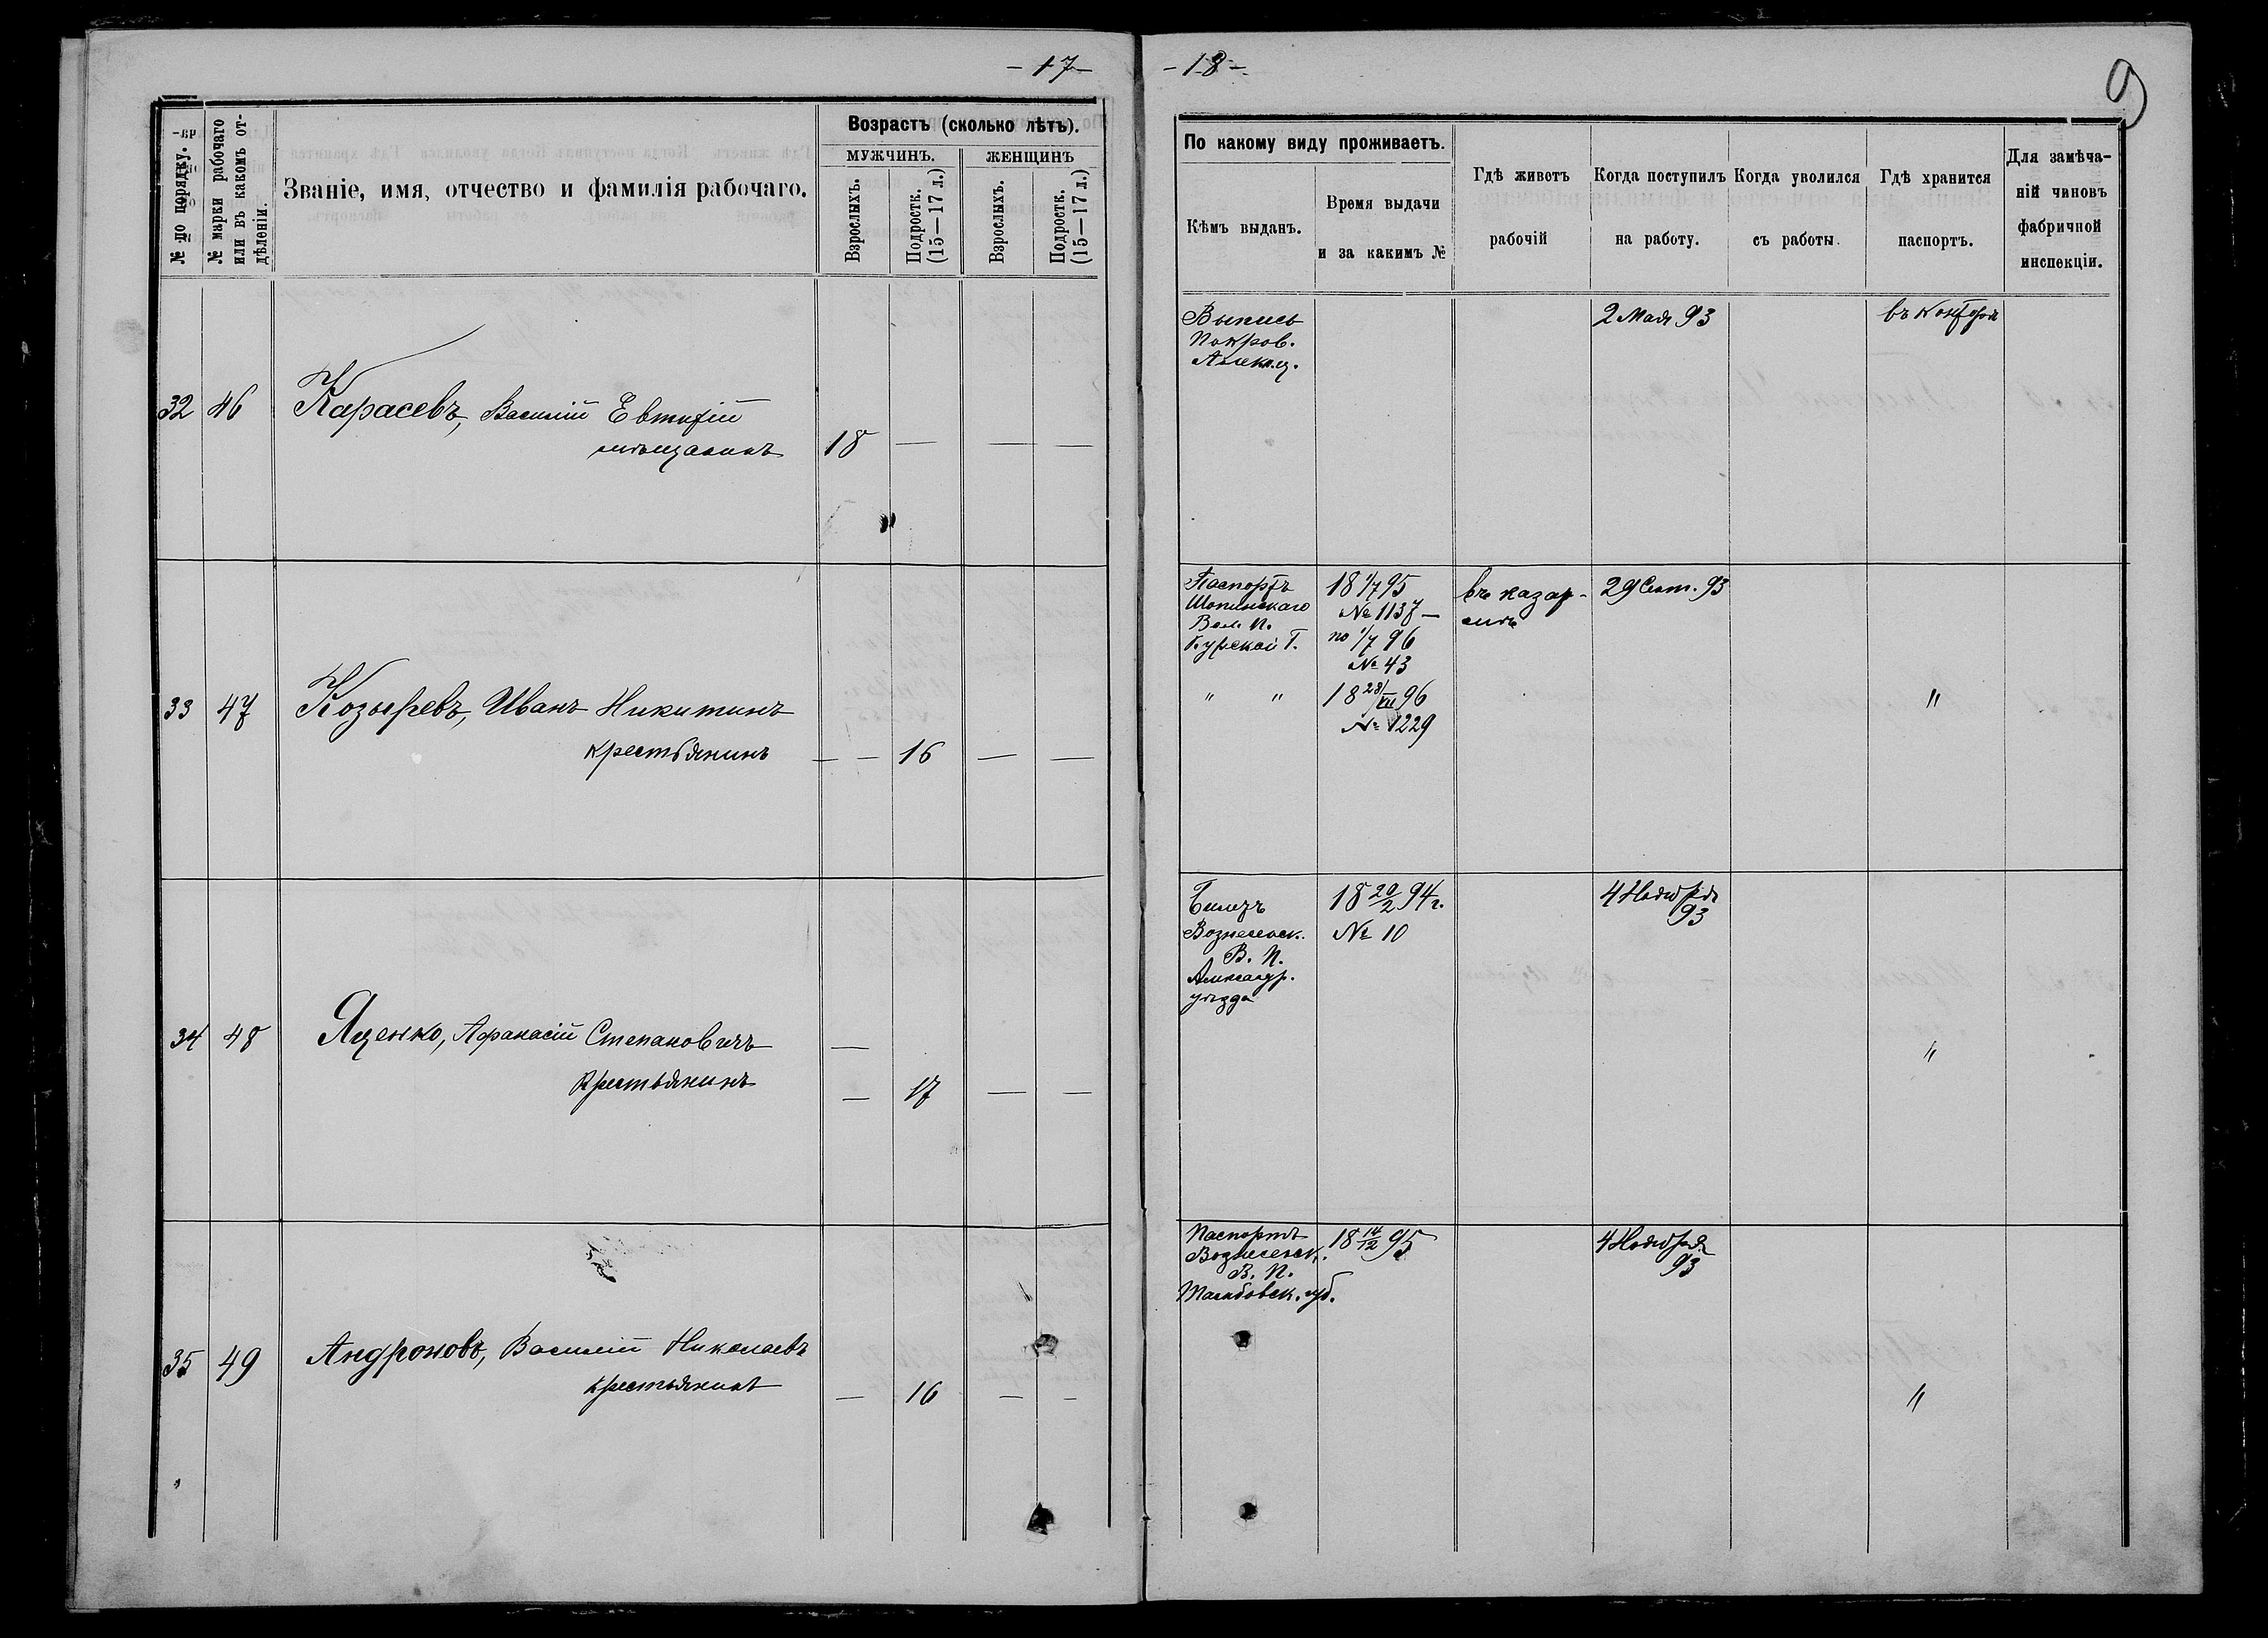 - 17 -
№ по порядку.
№ марки рабочаго
или въ какомъ от-
дѣленіи.
Званіе, имя, отчество и фамилія рабочаго.
Возрастъ (сколько лѣтъ).
МУЖЧИНЪ.
ЖЕНЩИНЪ
Взрослыхъ.
Подростк.
(15—17 л.)
Взрослыхъ.
Подростк.
(15—17 л.)
32 46 Карасевъ, Василій Евтифій
мѣщанинъ 18 — — —
33 47 Козыревъ, Иванъ Никитинъ
крестьянинъ — — 16 — —
34 48 Яценко, Афанасій Степановичъ —
Крестьянинъ — 17 — —
35 49 Андроновъ, Василій Николаевъ
крестьянинъ — 16 — —
- 18 -
9
По какому виду проживаетъ.
Кѣмъ выданъ.
Время выдачи
и за какимъ №
Гдѣ живетъ
рабочій
Когда поступилъ
на работу.
Когда уволился
съ работы.
Гдѣ хранится
паспортъ.
Для замѣча-
ній чиновъ
фабричной
инспекціи.
Выпись 2 Мая 93 въ Конторѣ
Покров.
Паспортъ 18 1/7 95 въ казар- 29 Сент. 93
№ 1137 — мѣ
Вол. П. по 1/7 96
Курской Г. № 43
" " 18 28/VII 96 "
№ 1229
Билетъ 18 20/2 94 г. 4 Ноября
Вознесенск. № 10 93
В. П.
Александр.
уѣзда
"
Паспортъ 18 14/12 95 4 Ноября
Вознесенск. 93
В. П.
Тамбовск. губ.
"